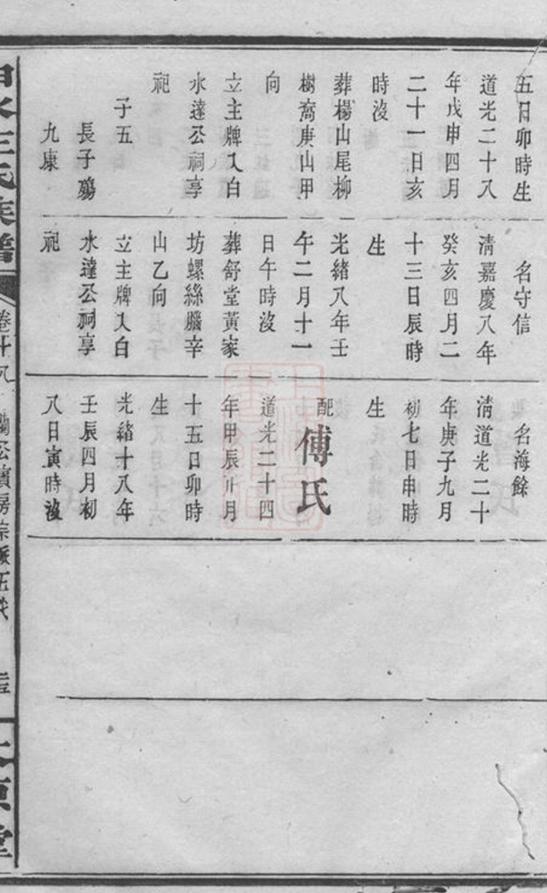 五日卯時生
道光二十八
年戊申四月
二十一日亥
時沒
葬楊山尾柳
樹窩庚山甲
向
立主牌入白
水達公祠享
祀
子五
長子殤
九康
名守信
清嘉慶八年
癸亥四月二
十三日辰時
生
光緒八年壬
午二月十一
日午時沒
葬舒堂黃家
坊螺絲腦辛
山乙向
立主牌入白
水達公祠享
祀
名海餘
清道光二十
年庚子九月
初七日申時
生
配傅氏
道光二十四
年甲辰正月
十五日卯時
生
光緒十八年
壬辰四月初
八日寅時沒
王氏族譜
卷廿八